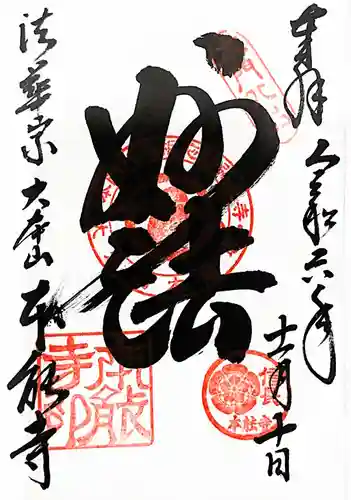 奉拝 令和六年
十一月十日
妙法
法華宗 大本山 本能寺
本能寺印
本能寺